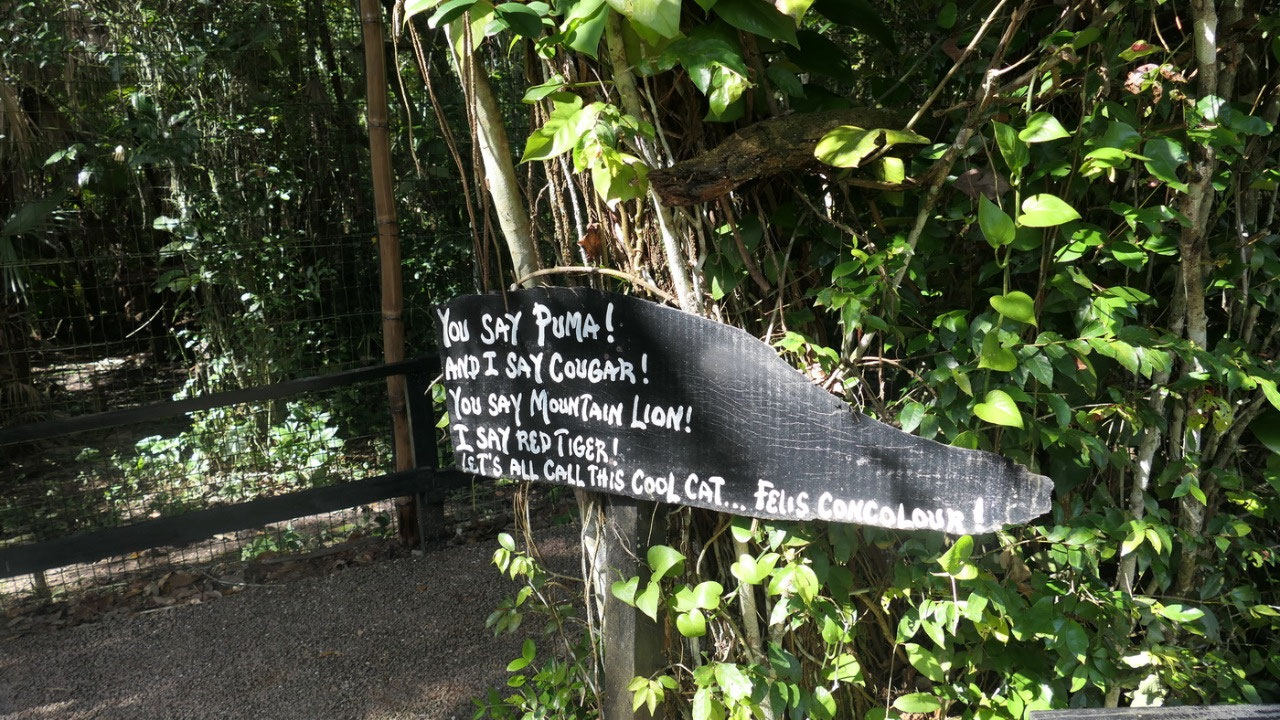 YOU SAY PUMA!
AND I SAY COUGAR!
YOU SAY MOUNTAIN LION!
I SAY RED TIGER!
LET'S ALL CALL THIS COOL CAT... FELIS CONCOLOUR!